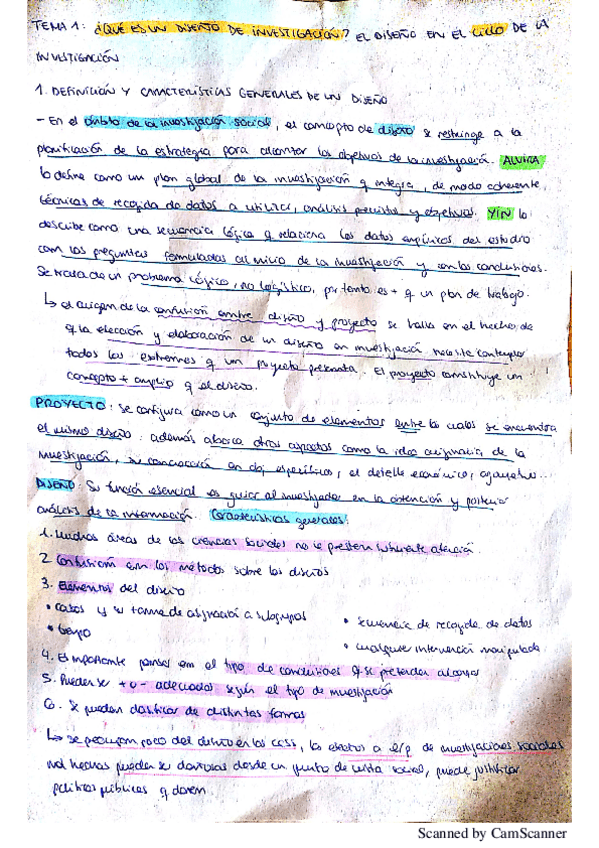 TEMA 1: ¿QUÉ ES UN DISEÑO DE INVESTIGACIÓN? EL DISEÑO EN EL CICLO DE LA
INVESTIGACIÓN
1. DEFINICIÓN Y CARACTERÍSTICAS GENERALES DE UN DISEÑO
- En el ámbito de la investigación social, el concepto de diseño se restringe a la
planificación de la estrategia para alcanzar los objetivos de la investigación. ALVIRA
lo define como un plan global de la investigación q integra, de modo coherente,
técnicas de recogida de datos a utilizar, análisis previstos y objetivos. YIN lo
describe como una secuencia lógica q relaciona los datos empíricos del estudio
con las preguntas formuladas al inicio de la investigación y con las conclusiones.
Se trata de un problema lógico, no logístico, por tanto es + q un plan de trabajo.
↳ el origen de la confusión entre diseño y proyecto se halla en el hecho de
q la elección y elaboración de un diseño en investigación necesite contemplar
todos los extremos q un proyecto presenta. El proyecto constituye un
concepto + amplio q el diseño.
PROYECTO: Se configura como un conjunto de elementos entre los cuales se encuentra
el mismo diseño. además abarca otros aspectos como la idea originaria de la
investigación, su concreción en obj. específicos, el detalle económico, organizativo...
DISEÑO: Su función esencial es guiar al investigador en la obtención y posterior
análisis de la información. Características generales:
1. Muchas áreas de las ciencias sociales no le prestan suficiente atención
2. Confusión con los métodos sobre los diseños
3. Elementos del diseño
• Casos y su forma de asignación a subgrupos
• tiempo
• Secuencia de recogida de datos
• cualquier intervención manipulada
4. Es importante pensar en el tipo de conclusiones q se pretenden alcanzar
5. Pueden ser + o - adecuados según el tipo de investigación
6. Se pueden clasificar de distintas formas
↳ se preocupan poco del diseño en las CCSS, los efectos a l/p de investigaciones sociales
mal hechas pueden ser dañosas desde un punto de vista social, puede justificar
políticas públicas q dañen
Scanned by CamScanner